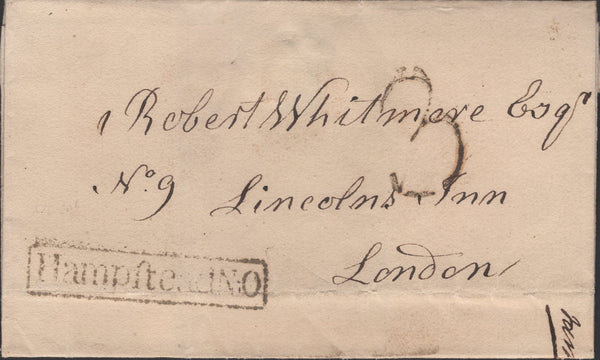 Robert Whitmore Esqr
3
No. 9 Lincolns Inn
London
HampſteadNO